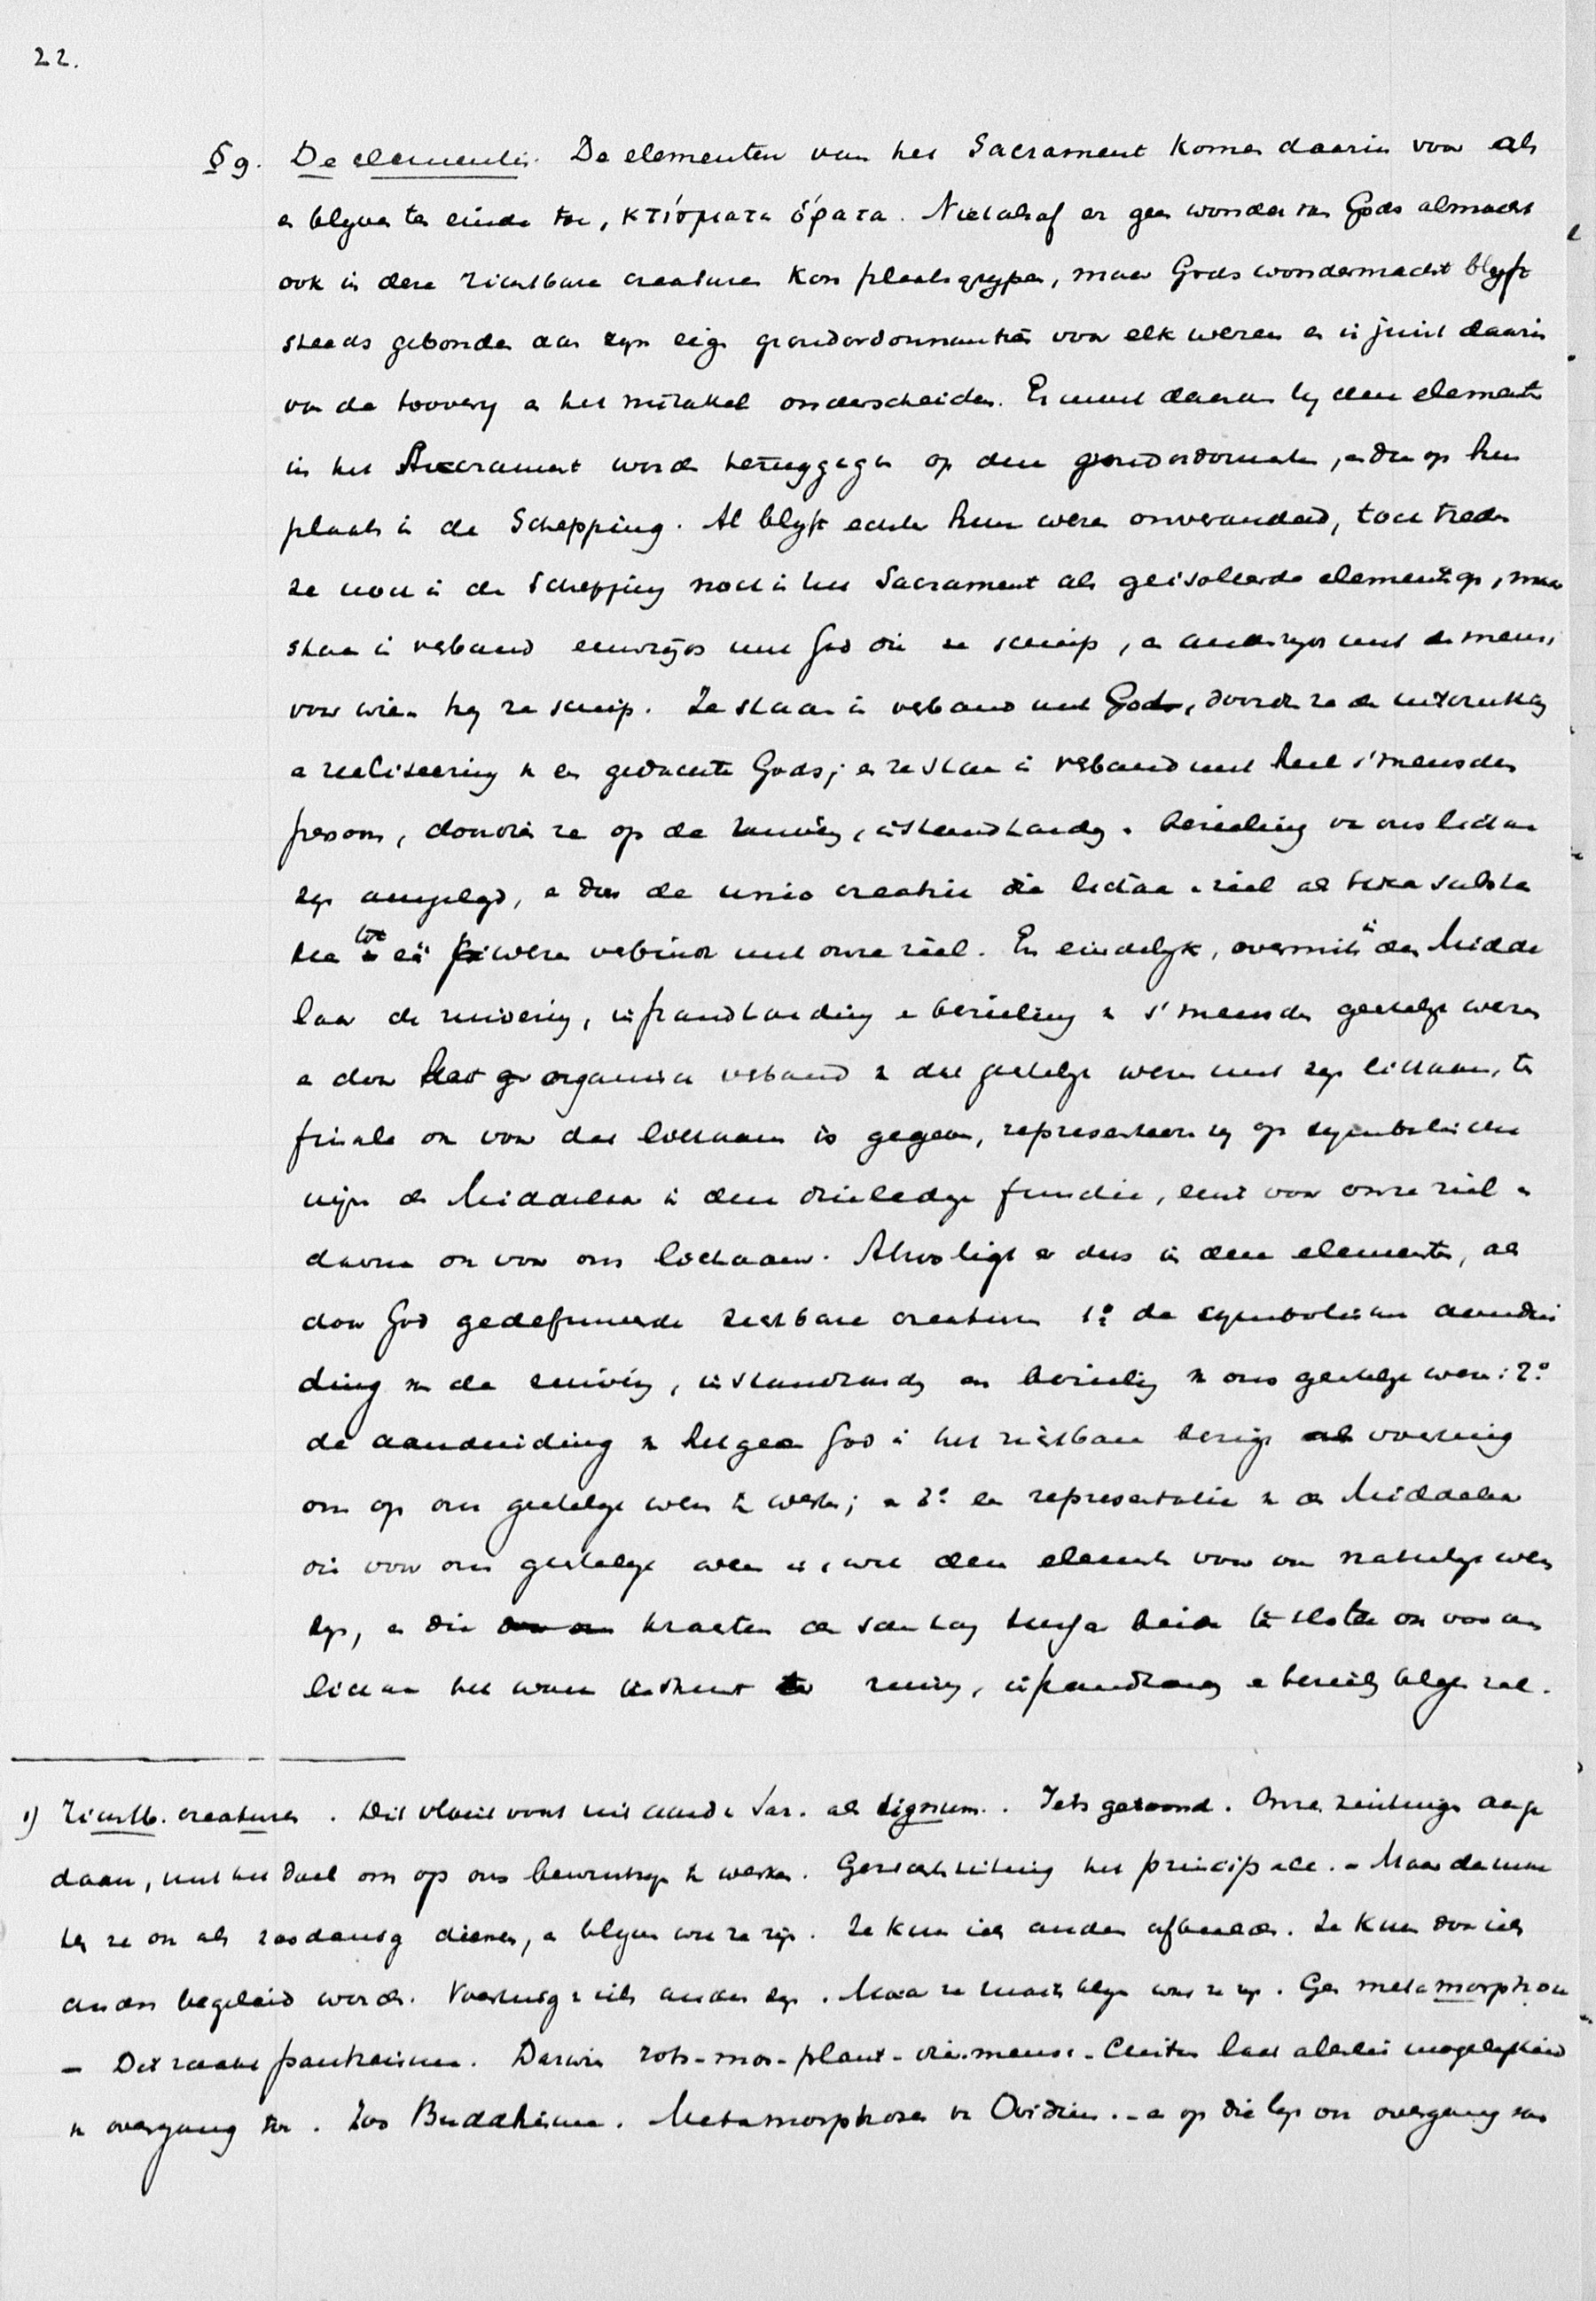 22.
§ 9. De elementis. De elementen van het Sacrament komen daarin voor als
en blyven ten einde toe, κτίσματα ὁρατα. Niet alsof er geen wonder van Gods almacht
ook in deze zichtbare creaturen kon plaatsgrypen, maar Gods wondermacht blyft
steeds gebonden aan zyn eigen grondordonnantiën voor elk wezen en is juist daarin
van de toovery en het mirakel onderscheiden. Er moet daarom by deze elementen
in het Sacrament worden teruggegaan op deze grondordonnantien, en dus op hun
plaats in de Schepping. Al blyft echter hun wezen onveranderd, toch treden
ze noch in de Schepping noch in het Sacrament als geisoleerde elementen op, maar
staan in verband eenerzyds met God die ze schiep, en anderzyds met de mensch
voor wien hy ze schiep. Ze staan in verband met God, doordien ze de uitdrukking
en realiseering zyn van een gedachte Gods; en ze staan in verband met heel 's menschen
persoon, doordien ze op de reiniging, instandhouding en bezieling van ons lichaam
zyn aangelegd, en door de unio creatrix die lichaam en ziel als twee substan
tien tot één wezen verbindt met onze ziel. En eindelyk, overmits in den Midde
laar de reiniging, instandhouding en bezieling van 's menschen geestelyk wezen
en door het organisch verband van dat geestelyk wezen met zyn lichaam, ten
finale ook voor dat lichaam is gegeven, representeeren zy op symbolische
wyze de Middelaar in deze drieledige functie, eerst voor onze ziel en
daarna ook voor ons lichaam. Alzoo ligt er dus in deze elementen, als
door God gedestineerde zichtbare creaturen 1º de symbolische aandui
ding van de reiniging, instandhouding en bezieling van ons geestelyk wezen: 2º
de aanduiding van hetgeen God in het zichtbare bezigt als voertuig
om op ons geestelyk wezen te werken; en 3º een representatie van de Middelaar
die voor ons geestelyk wezen is, wat deze elementen voor ons natuurlyk wezen
zyn, en die krachtens de samenhang tusschen beide ten slotte ook voor ons
lichaam het ware instrument tot reiniging, instandhouding en bezieling blyken zal.
1) Zichtb. creaturen. Dit vloeit voort uit aard v. Sacr. als signum. Iets getoond. Onze zintuigen aange
daan, met het doel om op ons bewustzyn te werken. Gezichtszintuig het principale. - Maar dan moe
ten ze ook als zoodanig dienen, en blyven wat ze zyn. Ze kunnen iets anders afbeelden. Ze kunnen door iets
anders begeleid worden. Voertuig van iets anders zyn. Maar ze moeten blyven wat ze zyn. Geen metamorphose
- Dit raakt pantheisme. Darwin rots-mos-plant-dier-mensch. Buiten laat allerlei mogelykheid
van overgang toe. Zoo Buddhisme. Metamorphosen van Ovidius. - en op die lyn ook overgang van